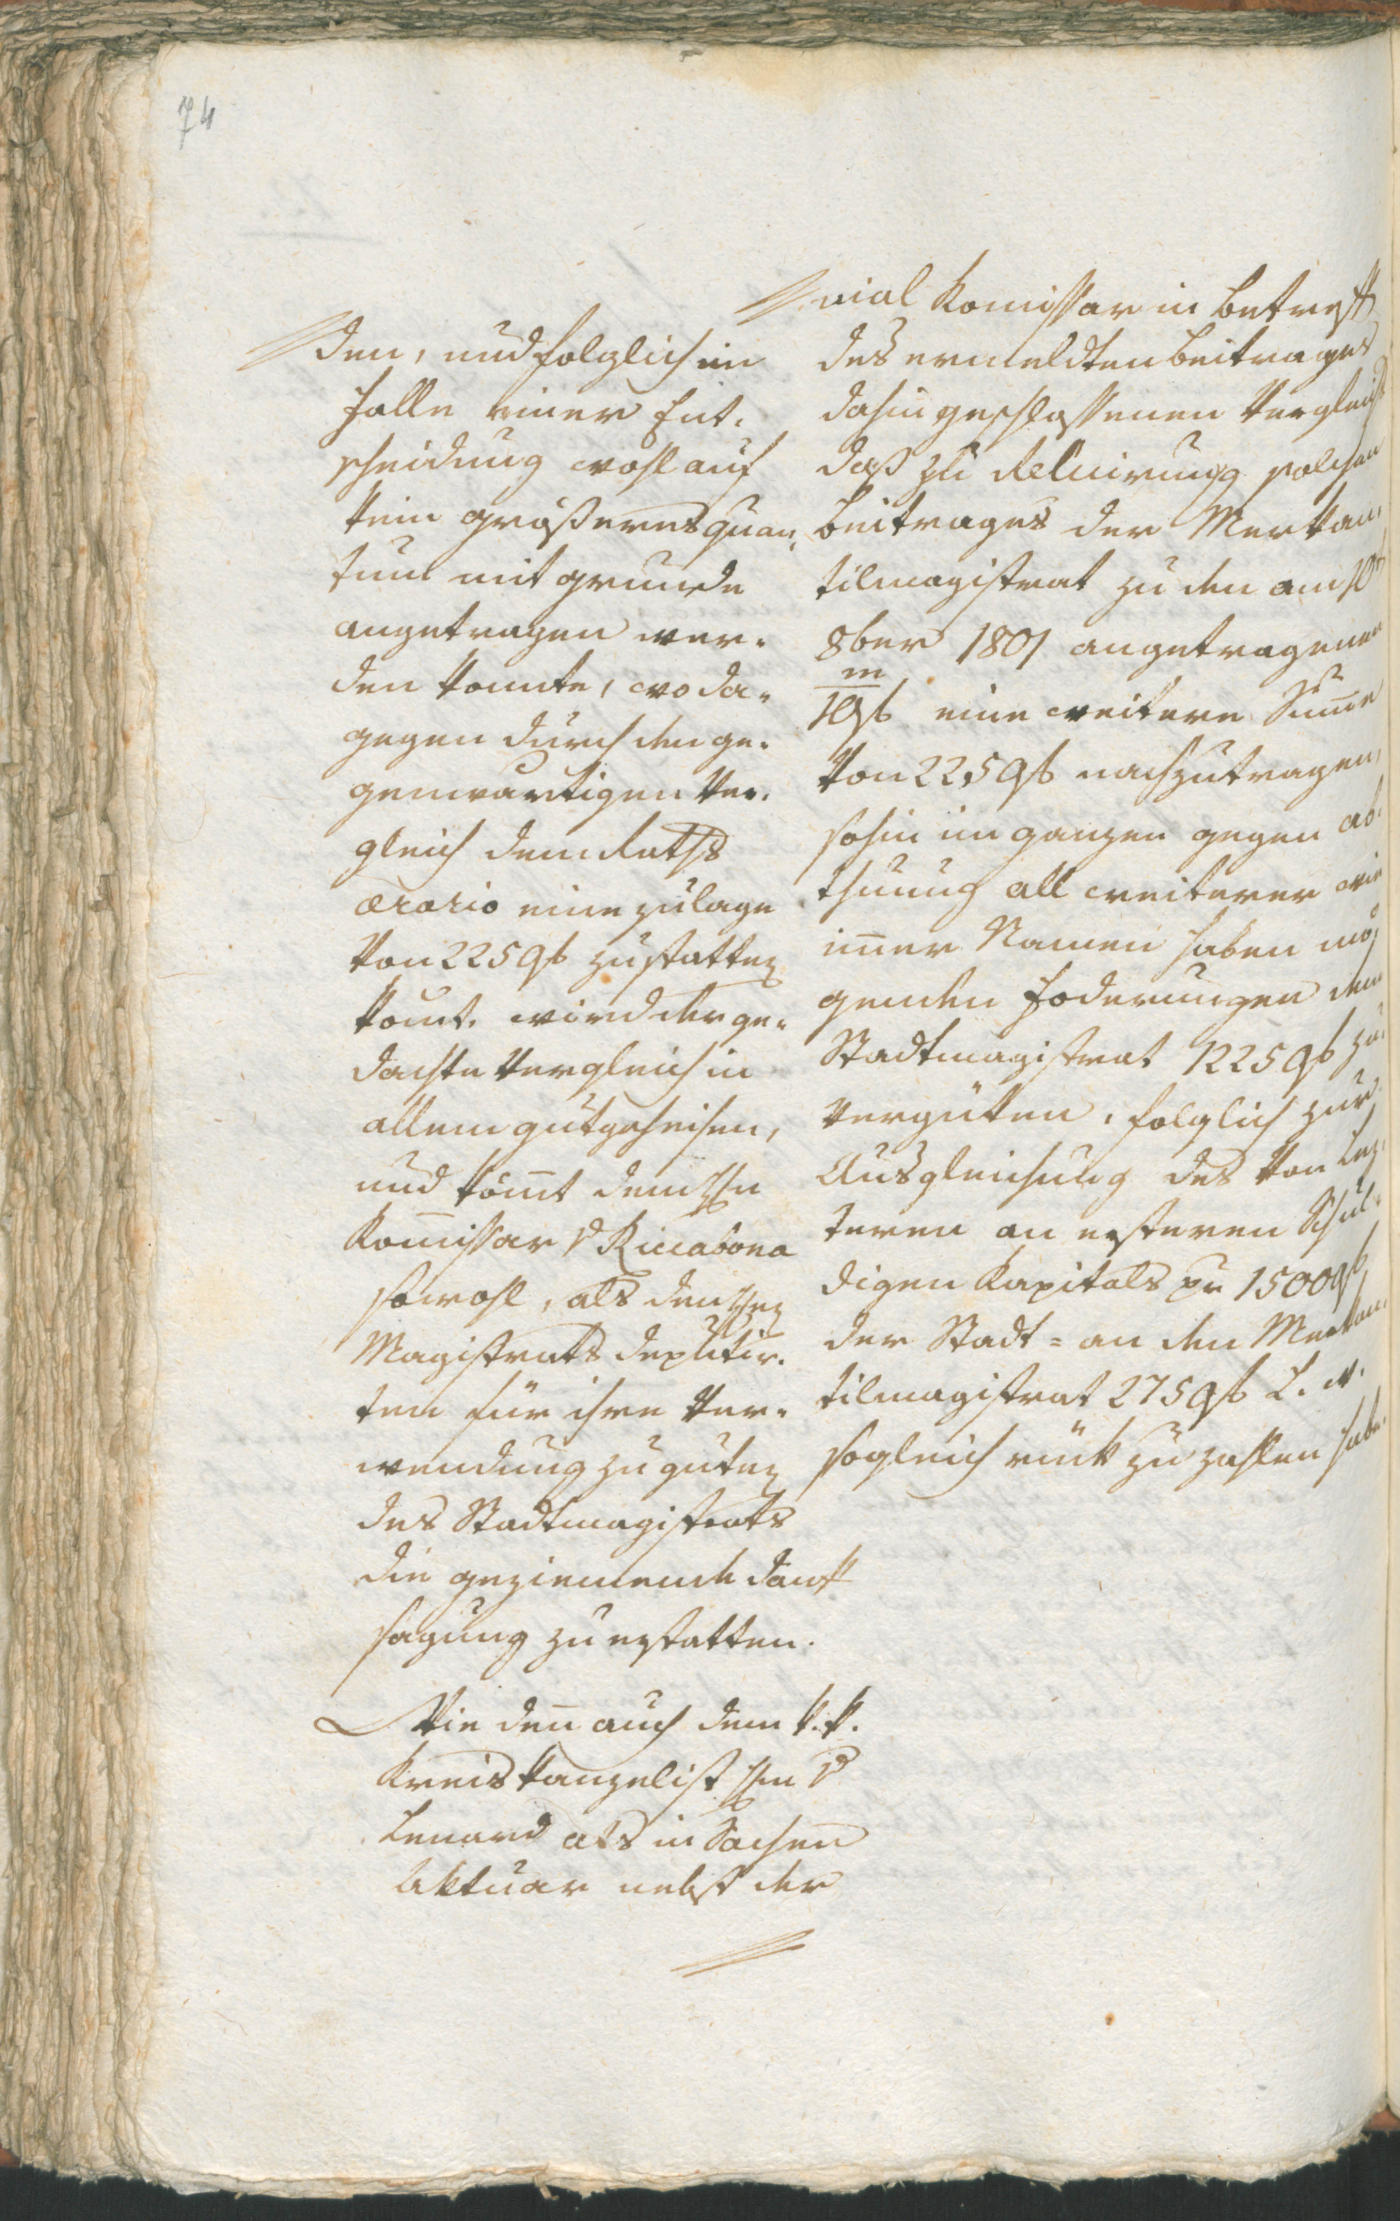 74
den, und folglich im
Falle einer Ent-
scheidung wohl auf
kein größeres Quan-
tum mit Grunde
angetragen wer-
den konnte, wo da-
gegen durch den ge-
genwärtigen Ver-
gleich dem Raths
ærario eine Zulage
von 2250 f zustatten
komt. wird der ge-
dachte Vergleich in
allem gutgeheisen,
und kömt dem Hn
Komissar v Riccabona
sowohl, als den Hen
Magistrats deputir-
ten für ihre Ver-
wendung zu guten
des Stadtmagistrats
die geziemende Dank
sagung zu erstatten.
Wie den auch dem k. k.
Kreiskanzelist Hn v
Lenard als in Sachen
Aktuar nebst der
vial Komissar in Betreff
des ermeldten Beitrages
dahin geschlossenen Vergleich
daß zu Reluirung solchen
Beitrages der Merkan-
tilmagistrat zu den am 10t
8ber 1801 angetragenen
m
10 f eine weitere Sume
von 2250 f nachzutragen,
sohin im ganzen gegen ab-
thuung all weiterer wie
imer Namen haben mö-
genden Foderungen dem
Stadtmagistrat 12250 f zu
vergüten, folglich zur
Ausgleichung des von Lez-
teren an ersteren Schul-
digen Kapitals pr 15000 f
der Stadt= an den Merkan-
tilmagistrat 2750 f L. w.
sogleich rük zu zahlen habe.